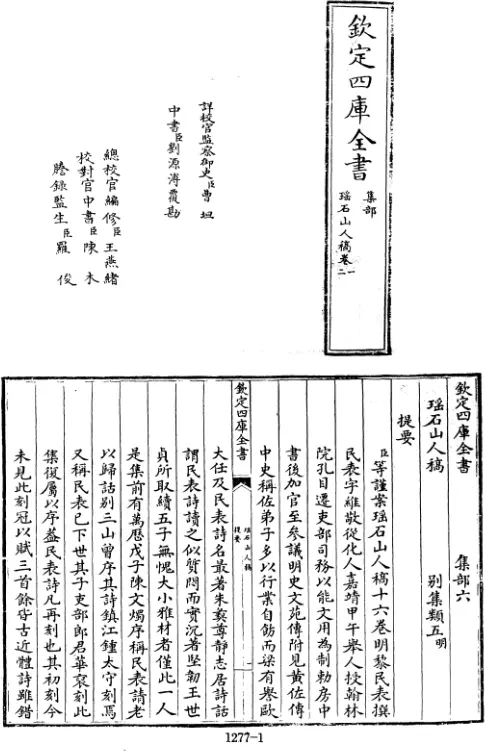 欽定四庫全書
集部
瑤石山人稿卷一二
詳校官監察御史臣曹坦
中書臣劉源溥覆勘
總校官編修臣王燕緒
校對官中書臣陳木
謄錄監生臣羅俊
欽定四庫全書 集部六
瑤石山人稿 別集類五明
提要
臣等謹案瑤石山人稿十六卷明黎民表撰
民表字維敬從化人嘉靖甲午舉人授翰林
院孔目遷吏部司務以能文用為制勅房中
書後加官至參議明史文苑傳附見黃佐傳
中史稱佐弟子多以行業自飭而梁有譽歐
欽定四庫全書 瑤石山人稿 提要 一
大任及民表詩名最著朱彝尊靜志居詩話
謂民表詩讀之似質悶而實沉著堅韌王世
貞所取續五子無愧大小雅材者僅此一人
是集前有萬厯戊子陳文燭序稱民表請老
以歸詁別三山曾序其詩鎮江鍾太守刻焉
又稱民表已下世其子吏部郎君華裒刻此
集復屬以序蓋民表詩凡再刻也其初刻今
未見此刻冠以賦三首餘皆古近體詩雖錯
1277-1